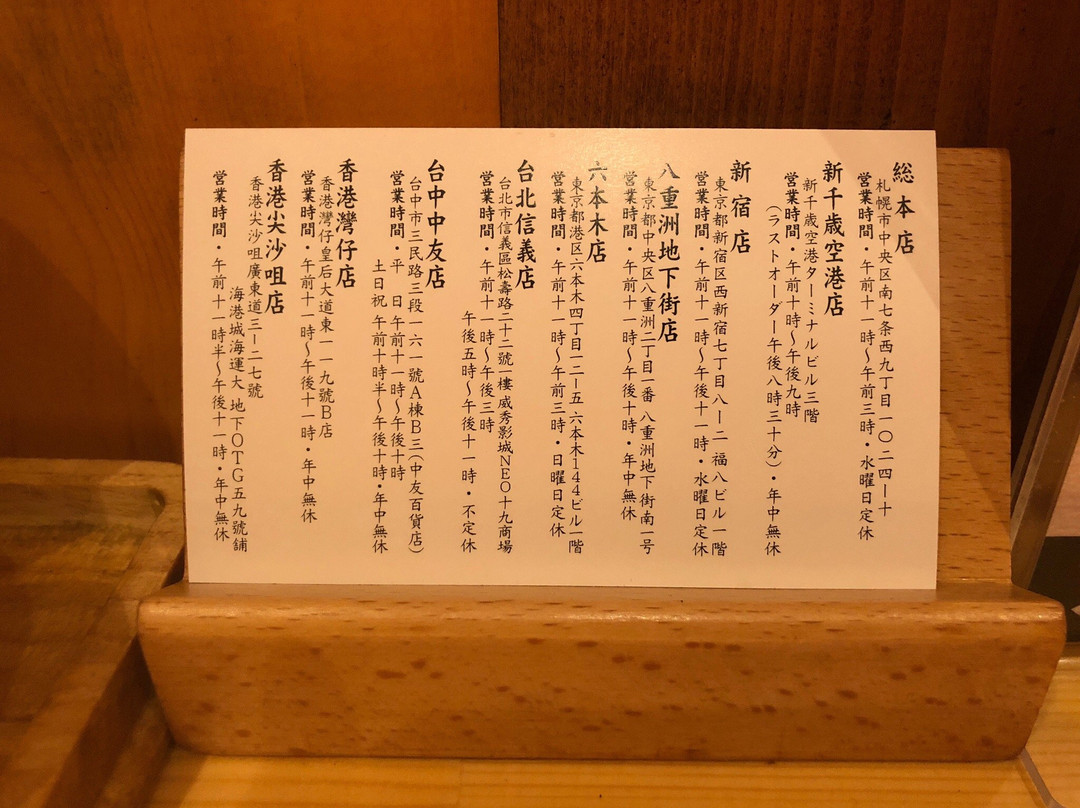 総本店
札幌市中央区南七条西九丁目一〇二四ー十
営業時間・午前十一時〜午前三時・水曜日定休
新千歳空港店
新千歳空港ターミナルビル三階
営業時間・午前十時〜午後九時
(ラストオーダー午後八時三十分)・年中無休
新宿店
東京都新宿区西新宿七丁目八ー二 福八ビル一階
営業時間・午前十一時〜午後十一時・水曜日定休
八重洲地下街店
東京都中央区八重洲二丁目一番 八重洲地下街南一号
営業時間・午前十一時〜午後十時・年中無休
六本木店
東京都港区六本木四丁目一二ー五 六本木144ビル一階
営業時間・午前十一時〜午前三時・日曜日定休
台北信義店
台北市信義區松壽路二十二號一樓威秀影城NEO十九商場
営業時間・午前十一時〜午後三時
午後五時〜午後十一時・不定休
台中中友店
台中市三民路三段一六一號A棟B三(中友百貨店)
営業時間・平 日 午前十一時〜午後十時
土日祝 午前十時半〜午後十時・年中無休
香港灣仔店
香港灣仔皇后大道東一一九號B店
営業時間・午前十一時〜午後十一時・年中無休
香港尖沙咀店
香港尖沙咀廣東道三ー二七號
海港城海運大 地下OTG五九號舗
営業時間・午前十一時半〜午後十一時・年中無休